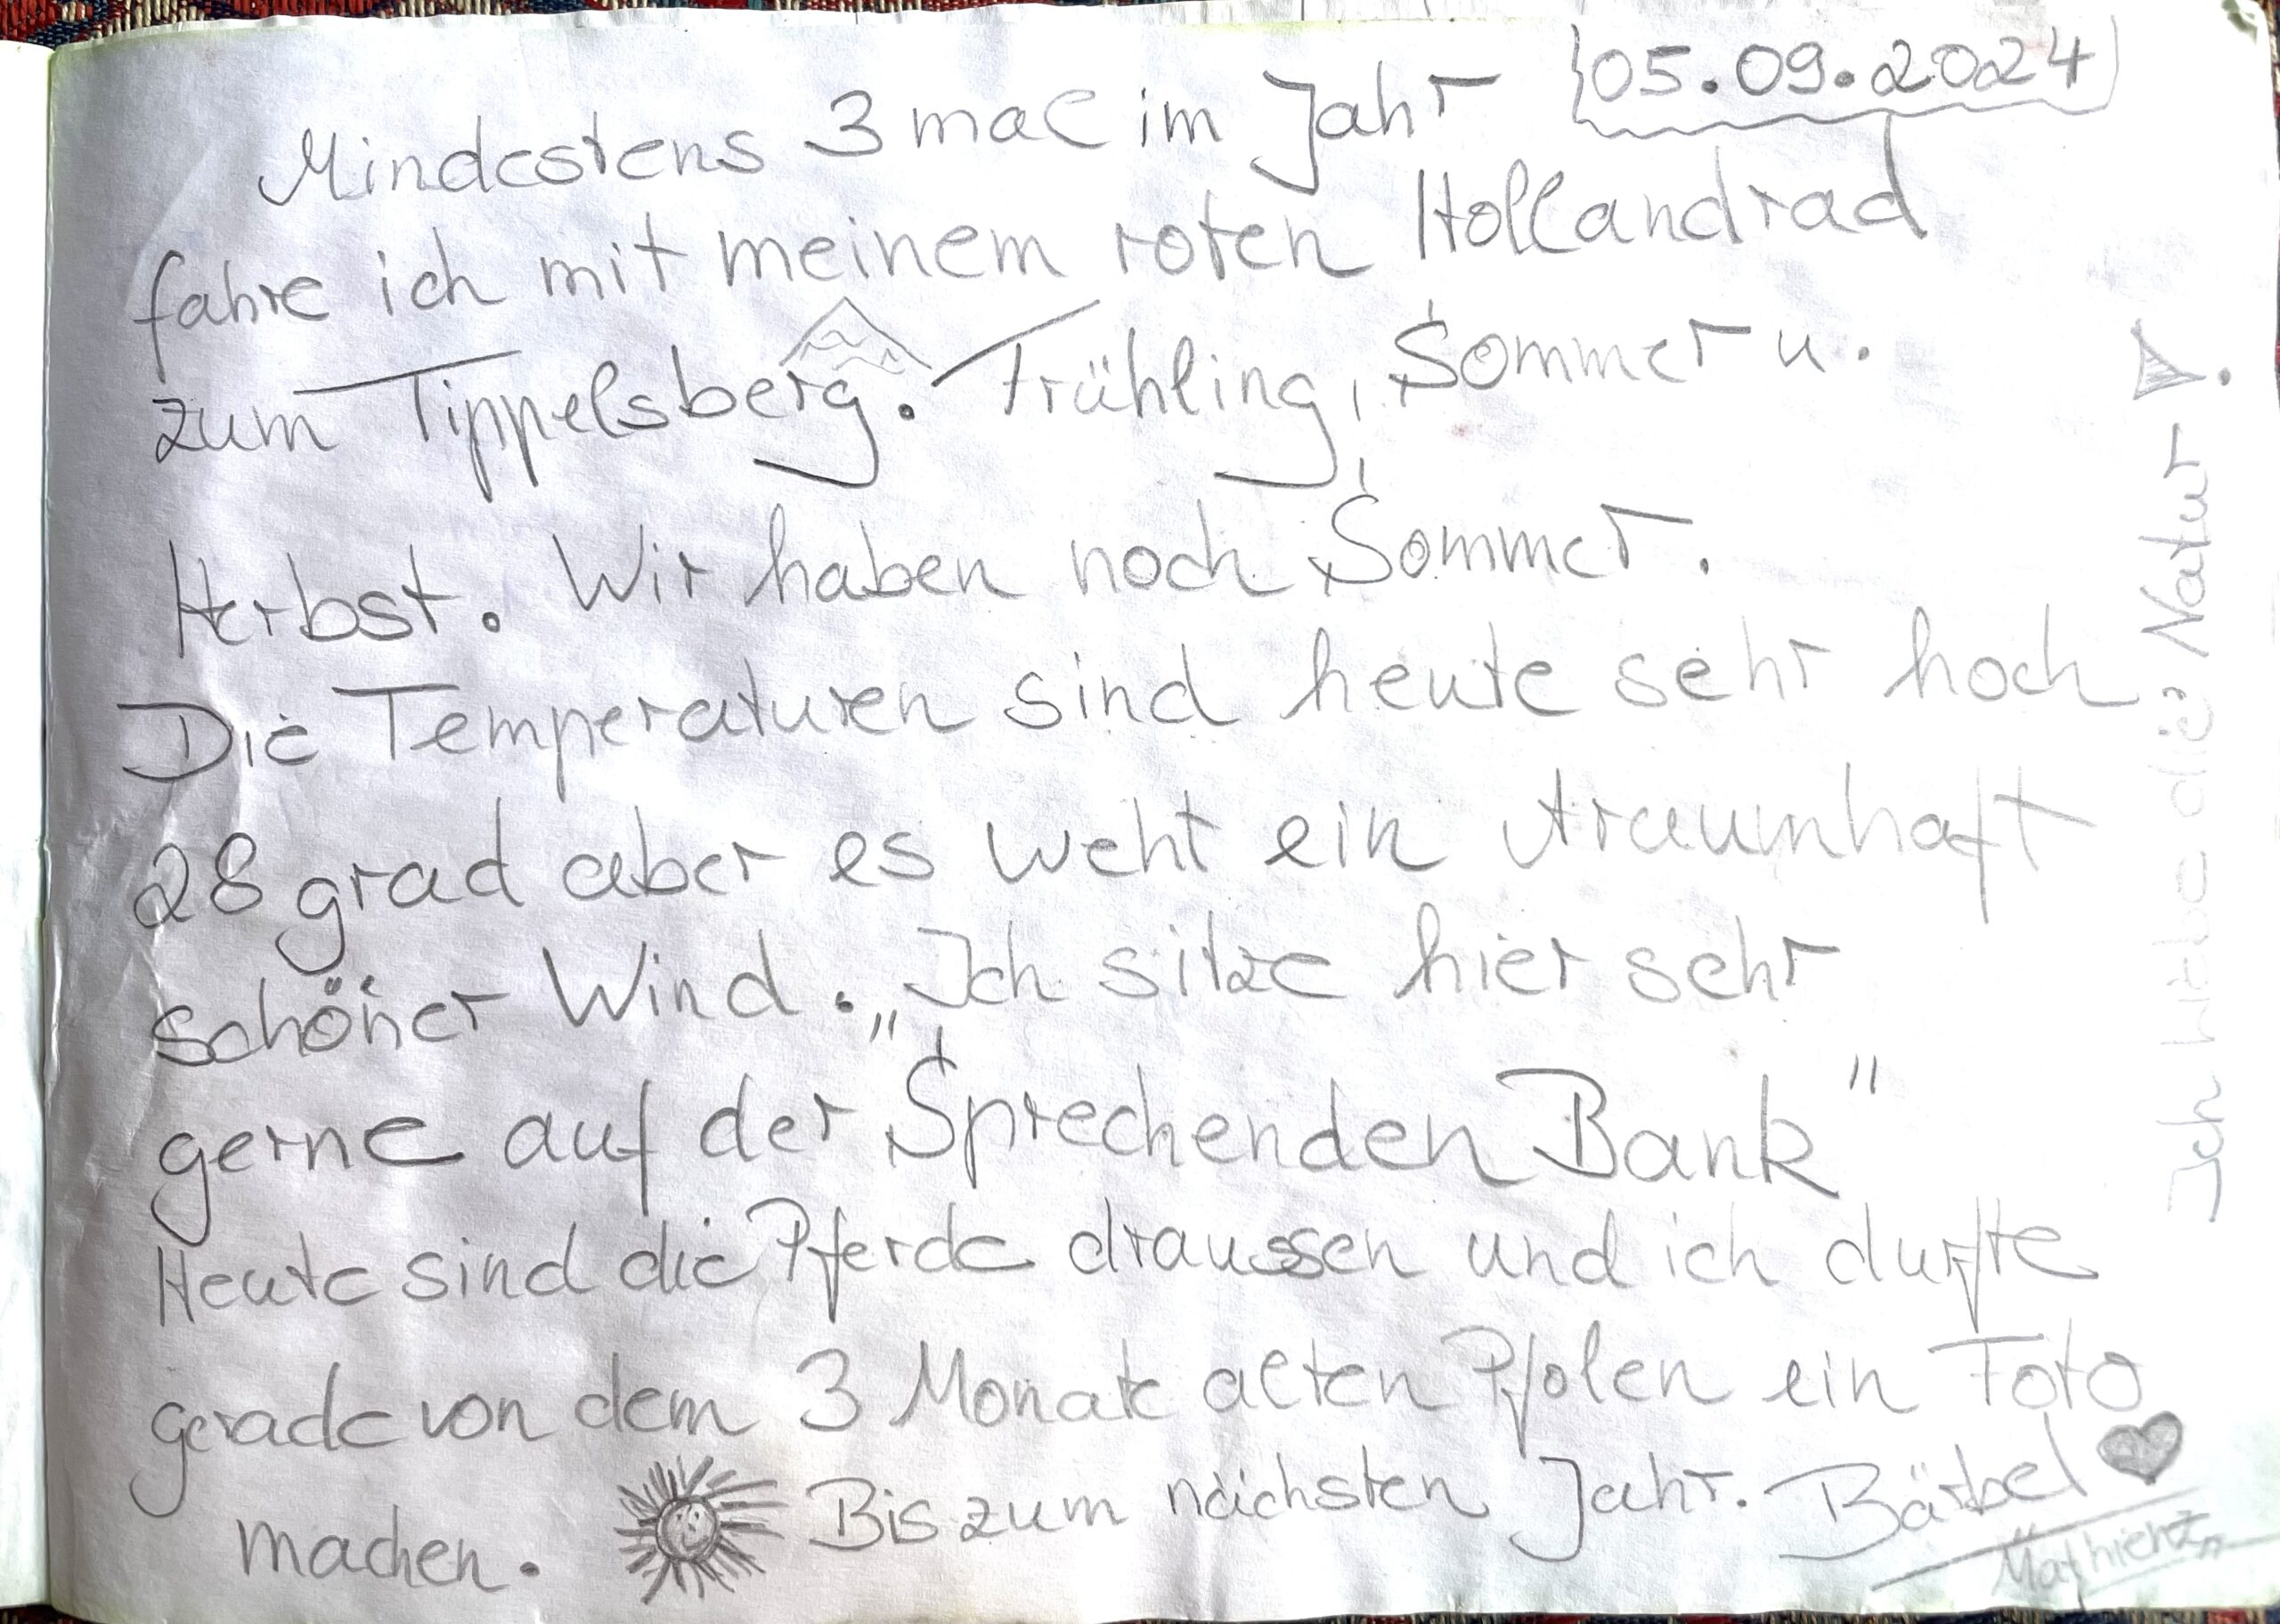 05.09.2024
Mindestens 3 mal im Jahr
fahre ich mit meinem roten Hollandrad
zum Tippelsberg. Frühling, Sommer u.
Herbst. Wir haben noch Sommer.
Die Temperaturen sind heute sehr hoch
28 grad aber es weht ein traumhaft
schöner Wind. Ich sitze hier sehr
gerne auf der „Sprechenden Bank"
Heute sind die Pferde draussen und ich durfte
gerade von dem 3 Monate alten Pfolen ein Foto
machen. Bis zum nächsten Jahr. Bärbel
Ich liebe die Natur!